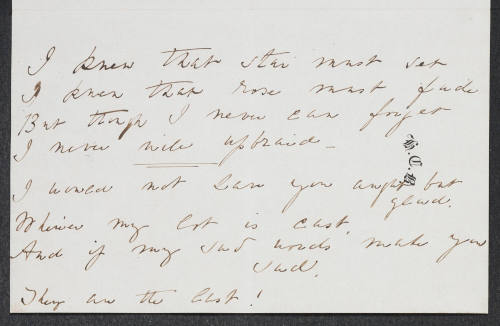 I knew that star must set
I knew that rose must fade
But though I never can forget
I never will upbraid –
I would not have you aught but
glad.
Where'er my lot is cast,
And if my sad words make you
sad,
They are the last!